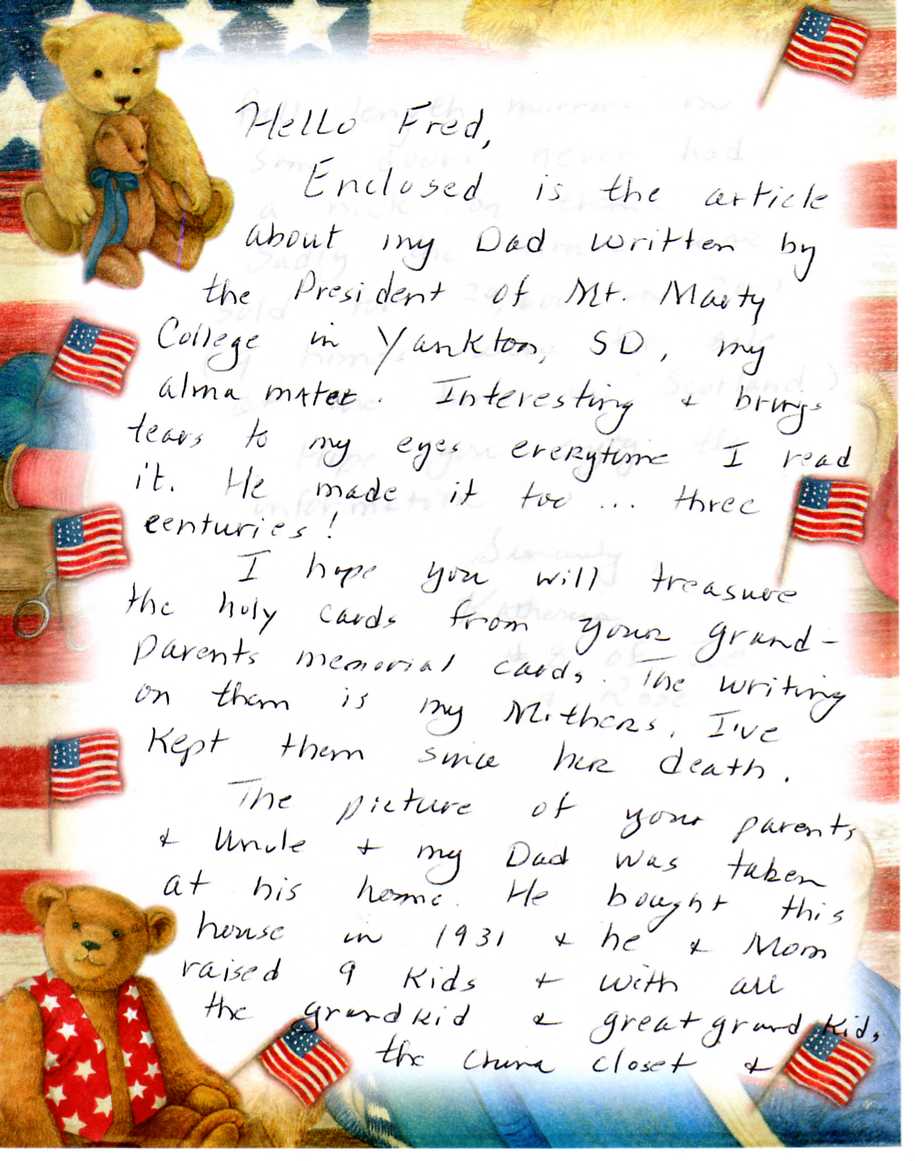 Hello Fred,
Enclosed is the article
about my Dad written by
the President of Mt. Marty
College in Yankton, SD, my
alma mater. Interesting & brings
tears to my eyes everytime I read
it. He made it too ... three
centuries!
I hope you will treasure
the holy cards from your grand-
parents memorial cards. The writing
on them is my Mothers. I've
kept them since her death.
The picture of your parents
& Uncle & my Dad was taken
at his home. He bought this
house in 1931 & he & Mom
raised 9 kids & with all
the grandkid & great grand kids,
the china closet &